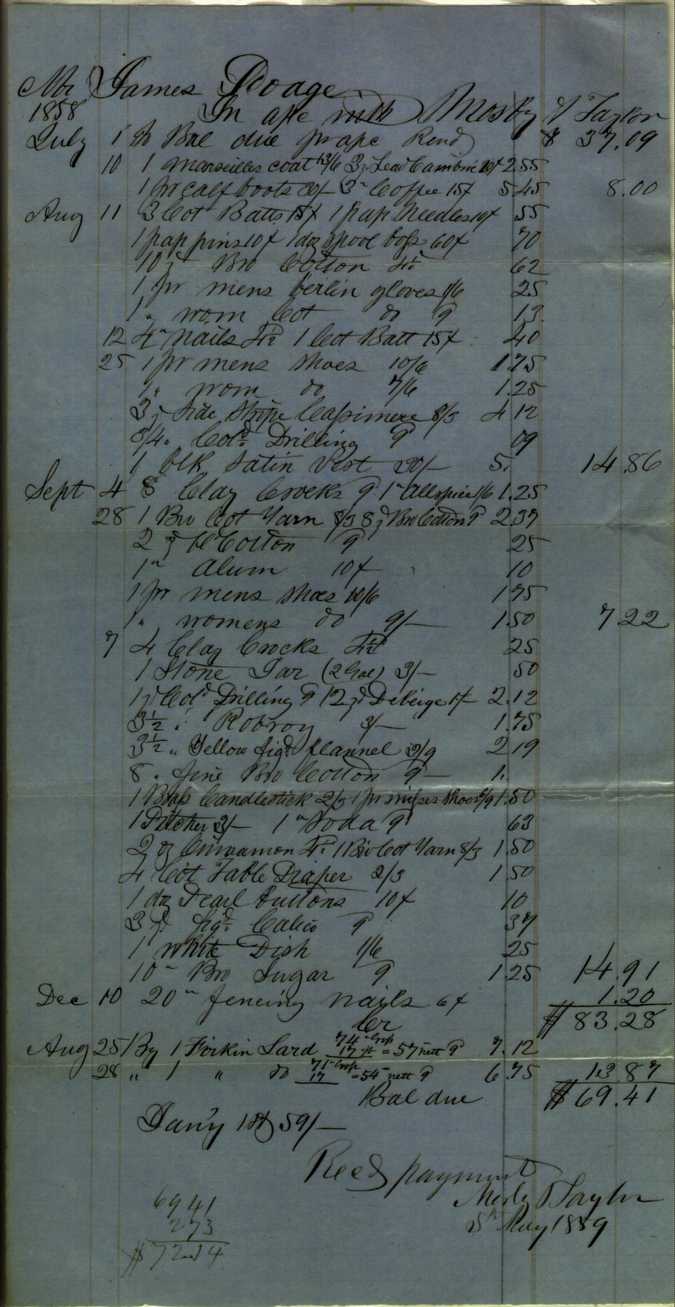 Mr James Doage
1858 In a/c with Mosby & Taylor
July 1 To Bal due pr a/c Rend $ 37.09
10 1 Marseilles coat 13/6 3 yd Lead Cambric 10¢ 2.55
1 pr calf boots 3 " Coffee 15¢ 5.45 8.00
Aug 11 3 Cot Batts 15¢ 1 pap Needles 10¢ 55
1 pap pins 10¢ 1 doz Spool 60¢ 70
10 yd Bro Cotton 62
1 pr mens berlin gloves 1/6 25
1 " wom Cot do 9 13
12 4 " Nails 1 Cot Batt 15¢ 40
25 1 pr mens shoes 10/6 1.75
1 " wom do 7/6 1.25
3 yd Side Stripe Cassimere 8/3 4.12
3/4 " Cold Drilling 9 09
1 blk Satin Vest 30/- 5. 14.86
Sept 4 8 Clay Crocks 9 1 " Allspice 1/6 1.25
28 1 Bro Cot Yarn 8/3 8 yd Bro Cotton 9 2.37
2 yd bl Cotton 9 25
1 " Alum 10¢ 10
1 pr mens shoes 10/6 1.75
1 " womens do 9/- 1.50 7.22
7 4 Clay Crocks 25
1 Stone Jar (2 Gal) 3/- 50
1 yd Cold Drilling 9 12 yd Debeige 1/- 2.12
3½ " Robroy 3/- 1.75
3½ " Yellow figd flannel 3/9 2.19
8 " fine Bro Cotton 9 - 1.
1 Candlestick 2/3 1 pr misses shoes 6/9 1.50
1 Pitcher 3/- 1 " Soda 9 63
2 oz Cinnamon 1 Bro Cot Yarn 8/3 1.50
4 Cot Table Diaper 2/3 1.50
1 doz Pearl buttons 10¢ 10
3 yd figd Calico 9 37
1 White Dish 1/6 25
10 " Bro Sugar 9 1.25 14.91
Dec 10 20 " fencing nails 6¢ 1.20
Cr $ 83.28
Aug 25 By 1 Firkin Lard 74 - Grop 17 = 57 nett 9 7.12
28 " 1 " do 71 - Grop 17 = 54 - nett 9 6.75 13.87
Bal due $ 69.41
Jany 1st 59/-
Recd payment
Mosby & Taylor
May 1859
6941
273
$ 72.14